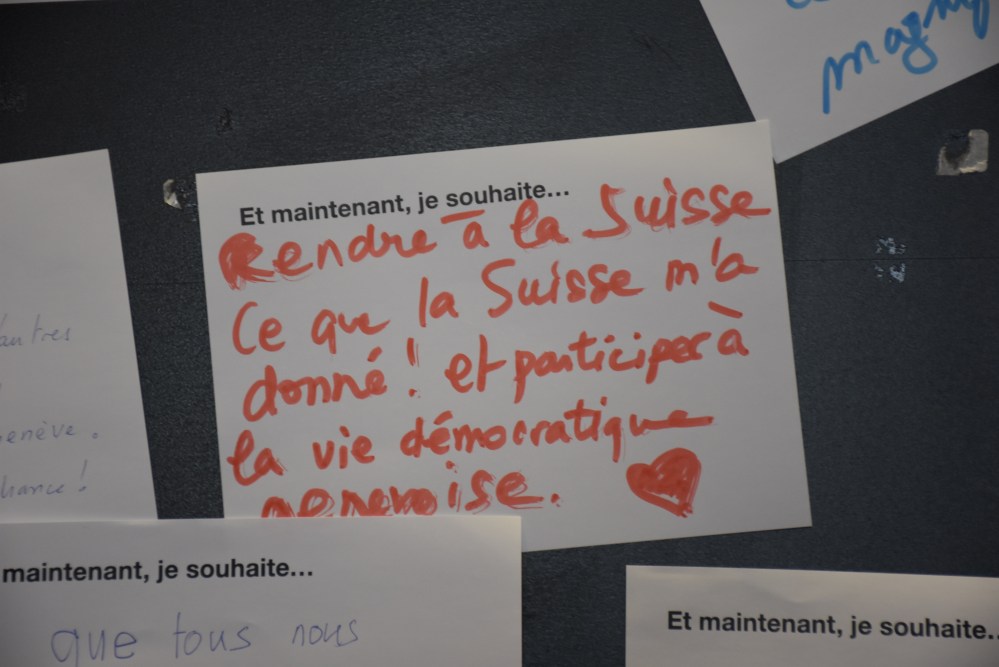 Et maintenant, je souhaite...
Rendre à la Suisse
Ce que la Suisse m'a
donné ! et participer à
la vie démocratique
genevoise.
magnif
autres
enève.
hance !
maintenant, je souhaite...
que tous nous
Et maintenant, je souhaite...